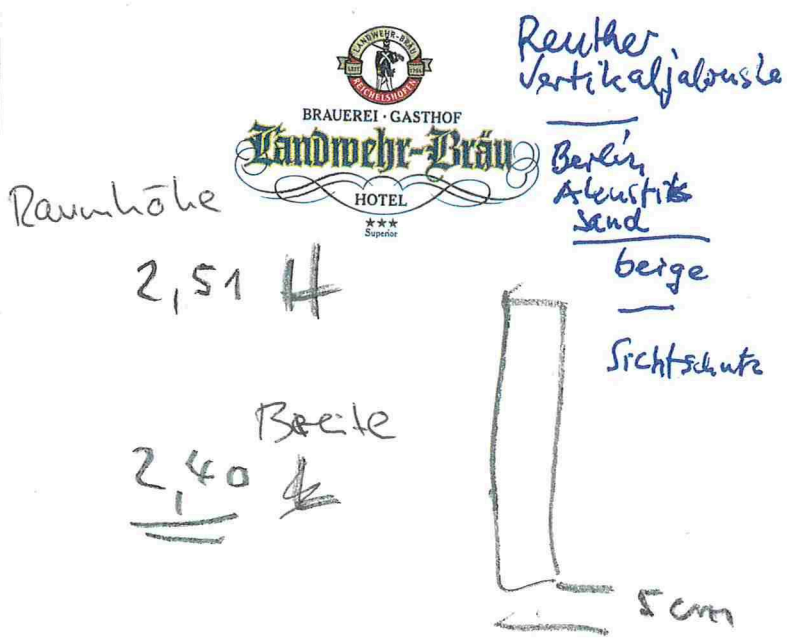 LANDWEHR-BRÄU
SEIT 1755
REICHELSHOFEN
BRAUEREI · GASTHOF
Landwehr-Bräu
HOTEL
★★★
Superior
Reuther
Vertikaljalousie
Berlin
Akustik
Sand
beige
Sichtschutz
Raumhöhe
2,51 H
Breite
2,40
5 cm